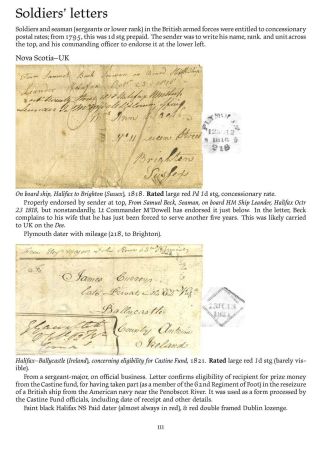 Soldiers’ letters
Soldiers and seaman (sergeants or lower rank) in the British armed forces were entitled to concessionary
postal rates; from 1795, this was 1d stg prepaid. The sender was to write his name, rank, and unit across
the top, and his commanding officer to endorse it at the lower left.
Nova Scotia–UK
Samuel Beck Seaman on Board
Leander Halifax Oct 23
Brighton
Sussex
PLYMOUTH
1818
218
On board ship, Halifax to Brighton (Sussex), 1818. Rated large red Pd 1d stg, concessionary rate.
Properly endorsed by sender at top, From Samuel Beck, Seaman, on board HM Ship Leander, Halifax Oct
23 1818, but nonstandardly, Lt Commander M’Dowell has endorsed it just below. In the letter, Beck
complains to his wife that he has just been forced to serve another five years. This was likely carried
to UK on the Dee.
Plymouth dater with mileage (218, to Brighton).
James
late Private
Ballycastle
County Antrim
Ireland
1821
Halifax–Ballycastle (Ireland), concerning eligibility for Castine Fund, 1821. Rated large red 1d stg (barely vis-
ible).
From a sergeant-major, on official business. Letter confirms eligibility of recipient for prize money
from the Castine fund, for having taken part (as a member of the 62nd Regiment of Foot) in the reseizure
of a British ship from the American navy near the Penobscot River. It was used as a form processed by
the Castine Fund officials, including date of receipt and other details.
Faint black Halifax NS Paid dater (almost always in red), & red double framed Dublin lozenge.